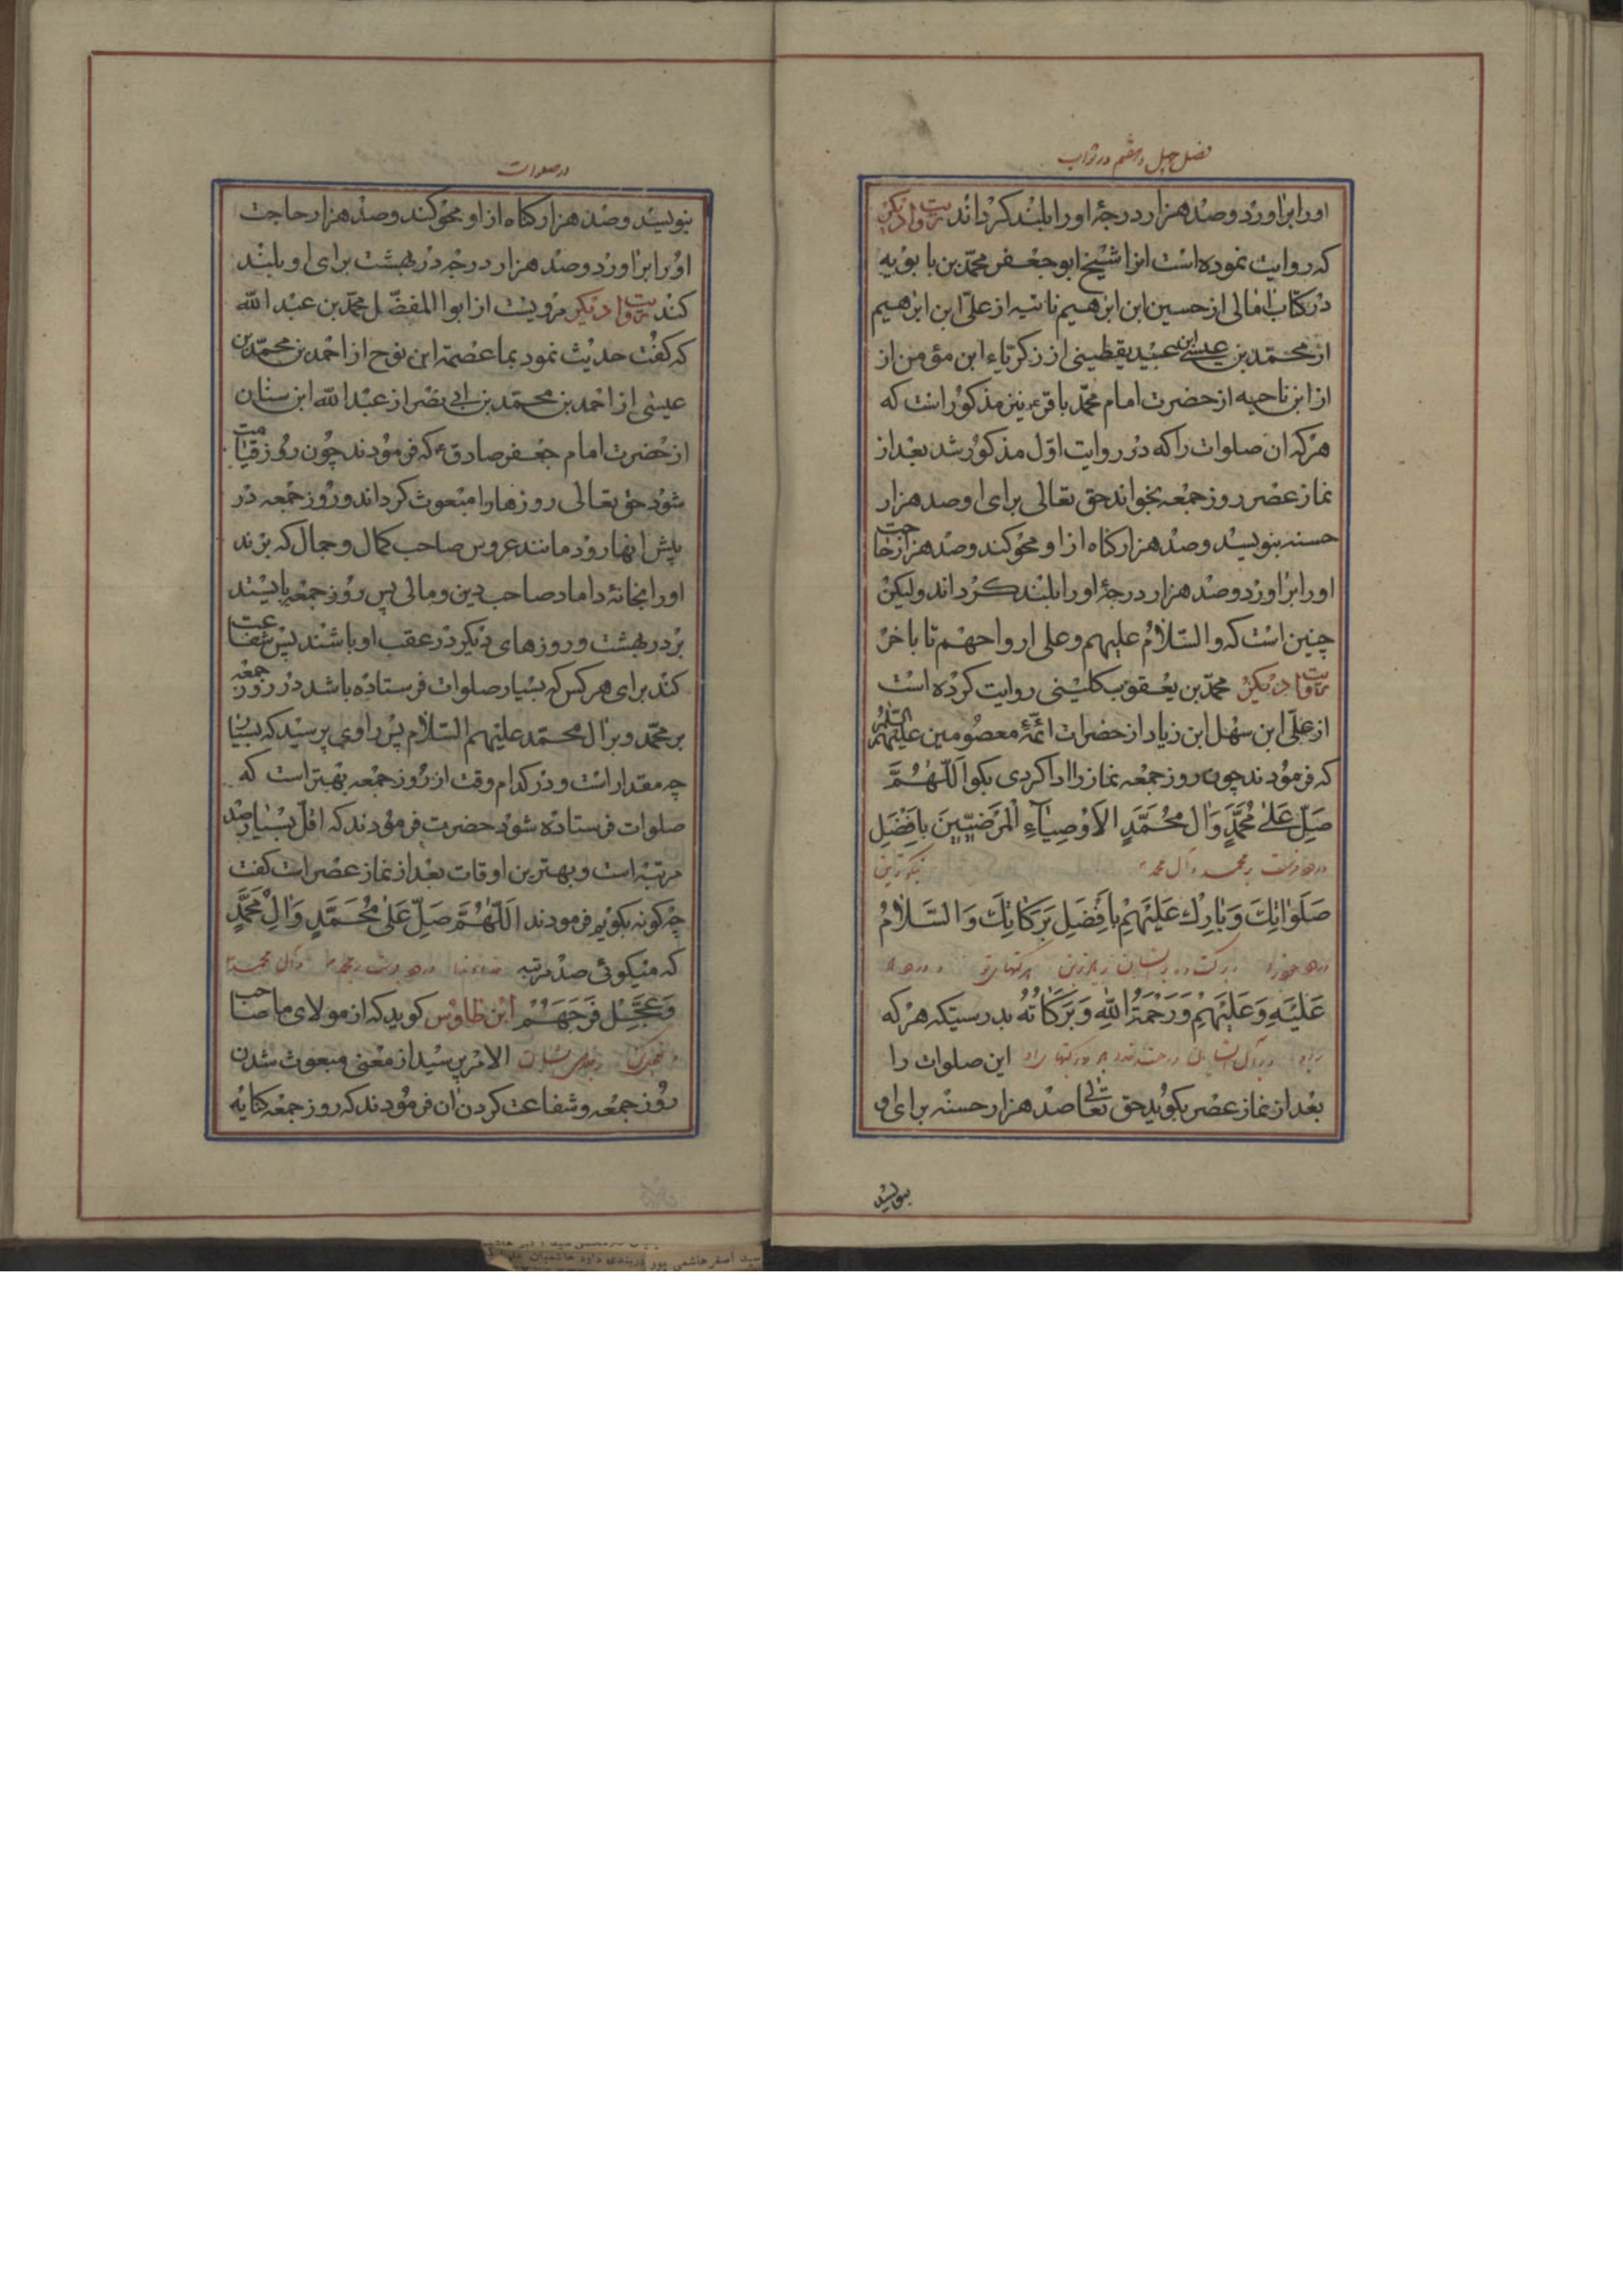 فصل چهل و هشتم در ثواب
اورا براورد و صد هزار درجهٔ اورا بلند کرداند روایت دیکر
که روایت نموده است انرا شیخ ابو جعفر محمّد بن بابویه
در کتاب امالی از حسین ابن ابرهیم ناتنیه از علی ابن ابرهیم
از محمّد بن عیسی ابن عبید یقطینی از زکریاء ابن مؤمن از
از ابن ناحیه از حضرت امام محمّد باقر ع نیز مذکور است که
هر که ان صلوات را که در روایت اوّل مذکور شد بعد از
نماز عصر روز جمعه بخواند حق تعالی برای او صد هزار
حسنه بنویسد و صد هزار کناه از او محو کند و صد هزار حاجت
اورا براورد و صد هزار درجهٔ اورا بلند کرداند ولیکن
چنین است که والسّلام علیهم وعلی ارواحهم تا باخر
روایت دیکر محمّد بن یعقوب کلینی روایت کرده است
از علی ابن سهل ابن زیاد از حضرات ائمّهٔ معصومین علیهم السّلام
که فرمودند چون روز جمعه نماز را ادا کردی بکو اَللّهُمَّ
صَلِّ عَلٰى مُحَمَّدٍ وَالِ مُحَمَّدٍ الاَوْصِيآءِ الْمَرْضِيّينَ بِاَفْضَلِ
درود فرست بر محمد و آل محمد نیکوترین
صَلَوَاتِكَ وَبَارِكْ عَلَيْهِمْ بِاَفْضَلِ بَرَكَاتِكَ وَالسَّلَامُ
درود خود و برکت ده بر ایشان برکتهای تو و درود
عَلَيْهِ وَعَلَيْهِمْ وَرَحْمَةُ اللهِ وَبَرَكَاتُهُ بدرستیکه هر که
این صلوات را
بعد از نماز عصر بکوید حق تعالی صد هزار حسنه برای او
بنویسد
در صلوات
بنویسد و صد هزار کناه از او محو کند و صد هزار حاجت
اورا براورد و صد هزار درجه در بهشت برای او بلند
کند روایت دیکر مرویست از ابو المفضّل محمّد بن عبد الله
که کفت حدیث نمود بما عصمة ابن نوح از احمد بن محمّد بن
عیسی از احمد بن محمّد بن ابی نصر از عبد الله ابن سنان
از حضرت امام جعفر صادق ع که فرمودند چون روز قیامت
شود حق تعالی روزها را مبعوث کرداند و روز جمعه در
پیش انها رود مانند عروس صاحب کمال و جمال که برند
اورا بخانهٔ داماد صاحب دین و مالی پس روز جمعه بایستد
بر در بهشت و روزهای دیکر در عقب او باشند پس شفاعت
کند برای هر کس که بسیار صلوات فرستاده باشد در روز جمعه
بر محمّد و بر ال محمّد علیهم السّلام پس راوی پرسید که بسیار
چه مقدار است و در کدام وقت از روز جمعه بهتر است که
صلوات فرستاده شود حضرت فرمودند که اقلّ بسیار صد
مرتبه است و بهترین اوقات بعد از نماز عصر است کفت
چکونه بکویم فرمودند اَللّهُمَّ صَلِّ عَلٰى مُحَمَّدٍ وَالِ مُحَمَّدٍ
که میکوئی صد مرتبه خداوندا درود فرست بر محمد و آل محمد
وَعَجِّلْ فَرَجَهُمْ ابن طاوس کوید که از مولای ما صاحب
الامر پرسید از معنی مبعوث شدن
روز جمعه و شفاعت کردن ان فرمودند که روز جمعه کنایه